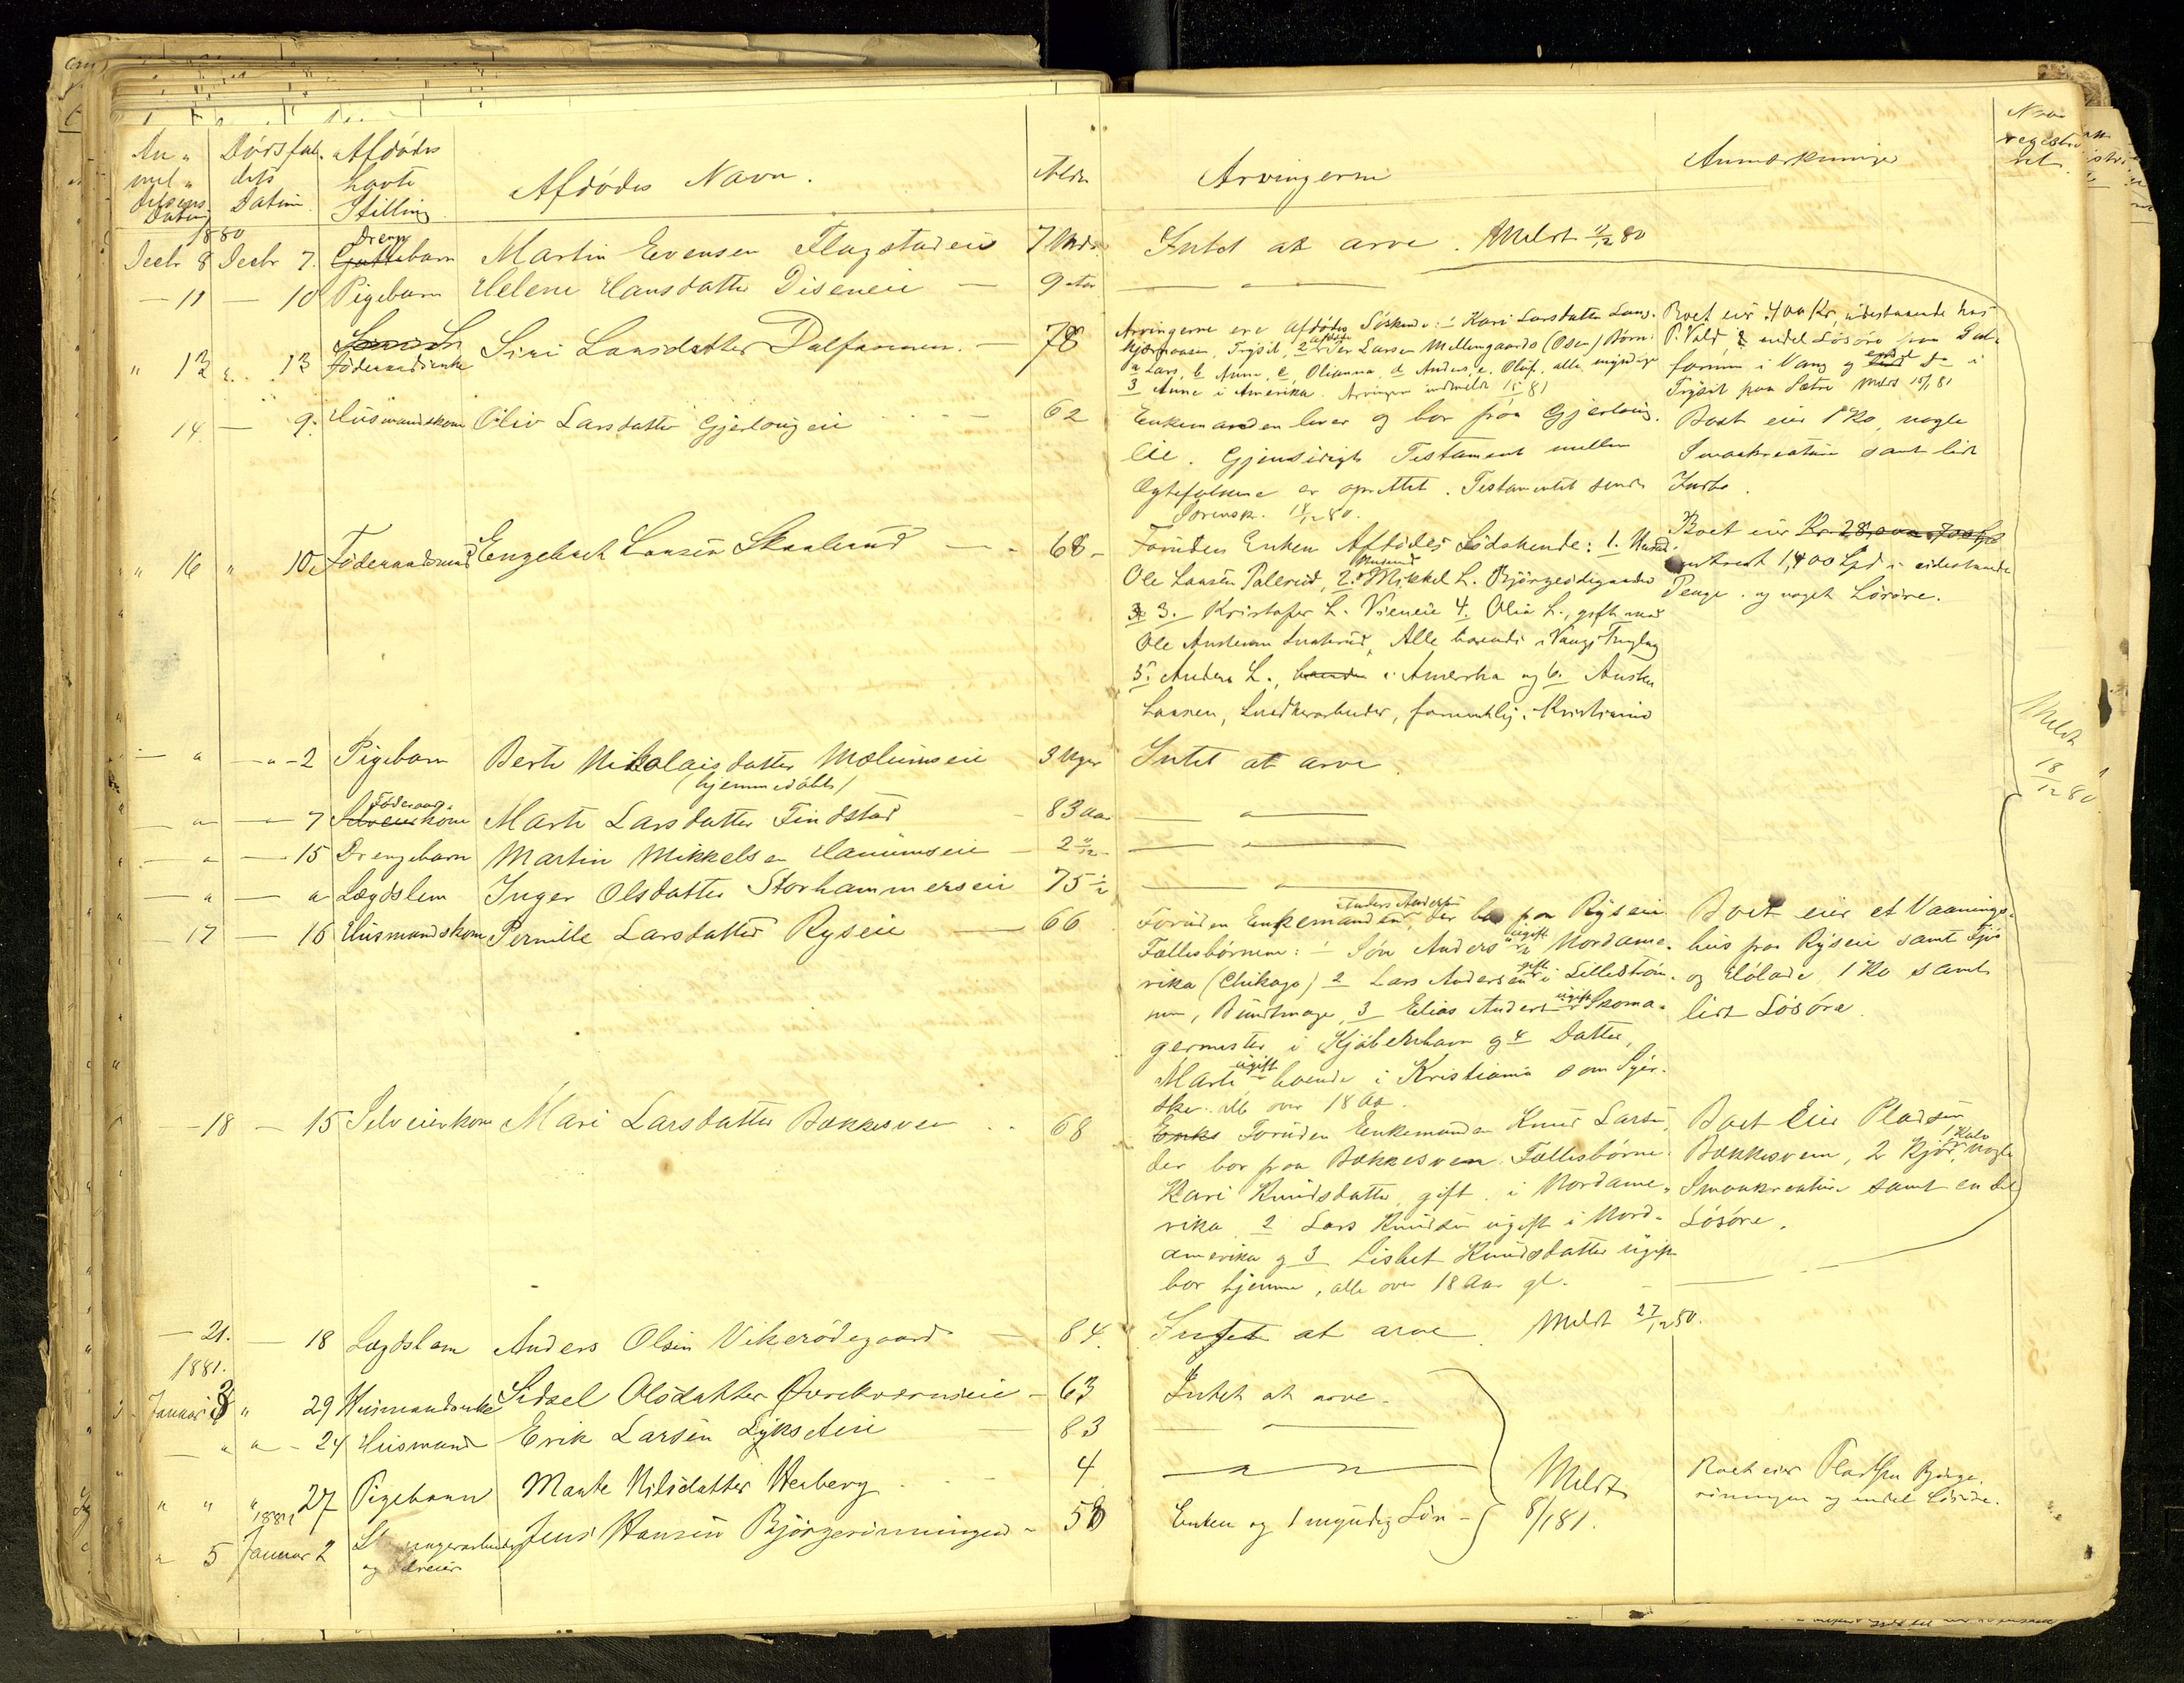 An- Dödsfal- Afdödes
mel- dets havte Afdödes Navn. Alder Arvingerne Anmærkninger Naar
delsens Datum. Stilling registre
Datum ret
1880
Decbr 8 Decbr 7. Drenge Martin Evensen Flagstadeie 7 Mdr. Intet at arve. Meldt 11/12 80
- 11 - 10 Pigebarn Helene Hansdatter Diseneie - 9 Aar - " -
" 13 " 13 Föderaadsenke Siri Larsdatter Dalfarmen. - 78
Arvingerne ere Afdödes Söskende: 1 Kari Larsdatter Lang-
kjærmoasen, Trysil, 2 afdöde Per Larsen Mellemgaards (Osen) Börn:
a Lars, b Anne, c Olianna, d Anders, e. Oluf, alle myndige
3 Anne i Amerika. Arvingerne indmeldt 15/1 81
Boet eier 400 Kr, udestaaende hos
P. Vold & endel Lösöre paa Dal-
farmen i Vang og endel do i
Trysil paa Sætre Meldt 15/1 81
14 - 9. Husmandskone Oliv Larsdatter Gjerlougeie - 62
Enkemanden lever og bor paa Gjerloug-
eie. Gjensidigt Testament mellem
Ægtefolkene er oprettet. Testamentet sendt
Sorenskr. 18/12 80.
Boet eier 1 Ko, nogle
Smaakreature samt lidt
Indbo.
" 16 " 10 Föderaadsmand Engebret Larsen Skaalerud - 68 -
Foruden Enken Afdödes Södskende: 1. Husmd.
Ole Larsen Palerud, 2. Husmand Mikkel L. Björgeödegaarden
3. Kristofer L. Vieneie 4. Olia L., gift med
Ole Austensen, Alle boende i Vang Thinglag
5. Anders L., boende i Amerika og 6. Austen
Larsen, Snedkerarbeider, formentlig i Kristiania
Boet eier Kr.
omtrent 1,400 Spd i udestaaende
Penge. og noget Lösöre.
- " - " - 2 Pigebarn Berte Nikolaisdatter Mælumseie 3 Uger Intet at arve.
(hjemmedöbt)
- " - 7 Föderaads- kone Marte Larsdatter Findstad - 83 Aar - " -
- " - 15 Drengebarn Martin Mikkelsen Hanumseie - 2 11/12 - " -
- " - " Lægdslem Inger Olsdatter Storhammerseie 75 1/2 - " -
Meldt
18/12 80
- 17 - 16 Husmandskone Pernille Larsdatter Ryseie - 66
Foruden Enkemanden Anders Andersen der bor paa Ryseie.
Fællesbörnene: 1 Sön Anders ugift i Nordame-
rika (Chikago) 2 Lars Andersen gift i Lilleström-
men, Buntmager, 3 Elias Anders. ugift Skoma-
germester i Kjöbenhavn og 4 Datter,
Marte ugift boende i Kristiania som Syer-
ske. alle over 18 Aar.
Boet eier et Vaanings-
hus paa Ryseie samt Fjös
og Hölade, 1 Ko samt
lidt Lösöre.
- 18 - 15 Selveierkone Mari Larsdatter Bækkesveen 68
Enke Foruden Enkemanden Knud Larsen,
der bor paa Bækkesveen. Fællesbörne:
Kari Knudsdatter, gift i Nordame-
rika 2 Lars Knudsen ugift i Nord-
amerika og 3 Lisbet Knudsdatter ugift
bor hjemme, alle over 18 Aar gl.
Boet Eier Pladsen
Bækkesveen, 2 Kjör, 1 Kalv nogle
Smaakreature samt en Del
Lösöre.
- 21. - 18 Lægdslem Anders Olsen Vikerödegaard - 84. Intet at arve Meldt 27/12 80.
1881.
Januar 3 " 29 Husmandsenke Sidsel Olsdatter Övrekvernseie - 63 Intet at arve.
- " " - 24 Husmand Erik Larsen Lykseteie - 83 -
" " " 27 Pigebarn Marte Nilsdatter Herberg - 4 - " -
1881
" 5 Januar 2 og Selveier Jens Hansen Björgerönningen - 58 Enken og 1 myndig Sön - Meldt 8/1 81.
Boet eier Pladsen Björge-
rönningen og endel Lösöre.